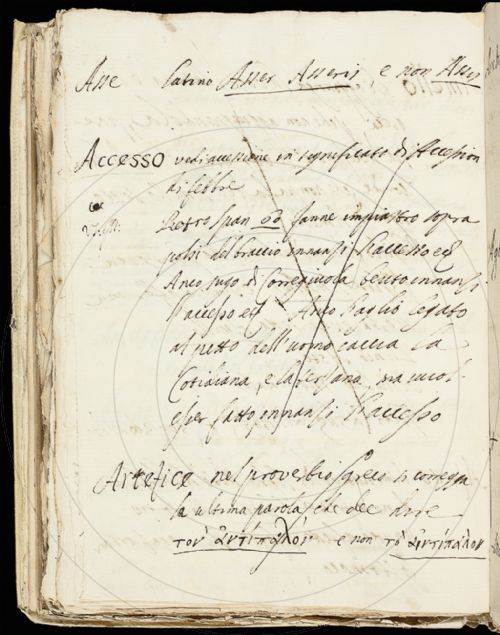 Asse latino Asser Asseris, e non Assis
Accesso vedi accessione in significato di Accession
di febbre
Pietro Span 02 fanne impiastro sopra
polsi del braccio innanzi l'accesso
Anco sugo di Coreggiuola beuto innanzi
l'accesso Anco l'aglio legato
al petto dell'uomo caccia la
Cotidiana, e la terzana, ma vuol
esser fatto innanzi l'accesso
Artefice nel proverbio Greco si corregga
la ultima parola che dee dire
τον ἀντίπαλον e non τὸ ἀντίπαλον